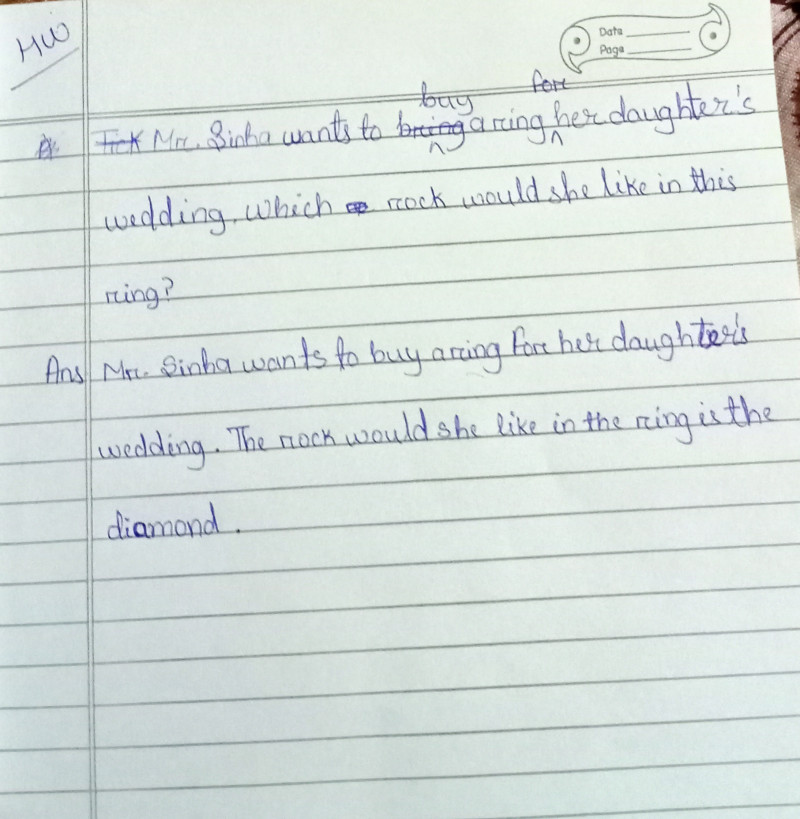 HW
Date
Page
buy for
Mr. Sinha wants to bring a ring her daughter's
wedding. which rock would she like in this
ring?
Ans Mr. Sinha wants to buy a ring for her daughter's
wedding. The rock would she like in the ring is the
diamond.